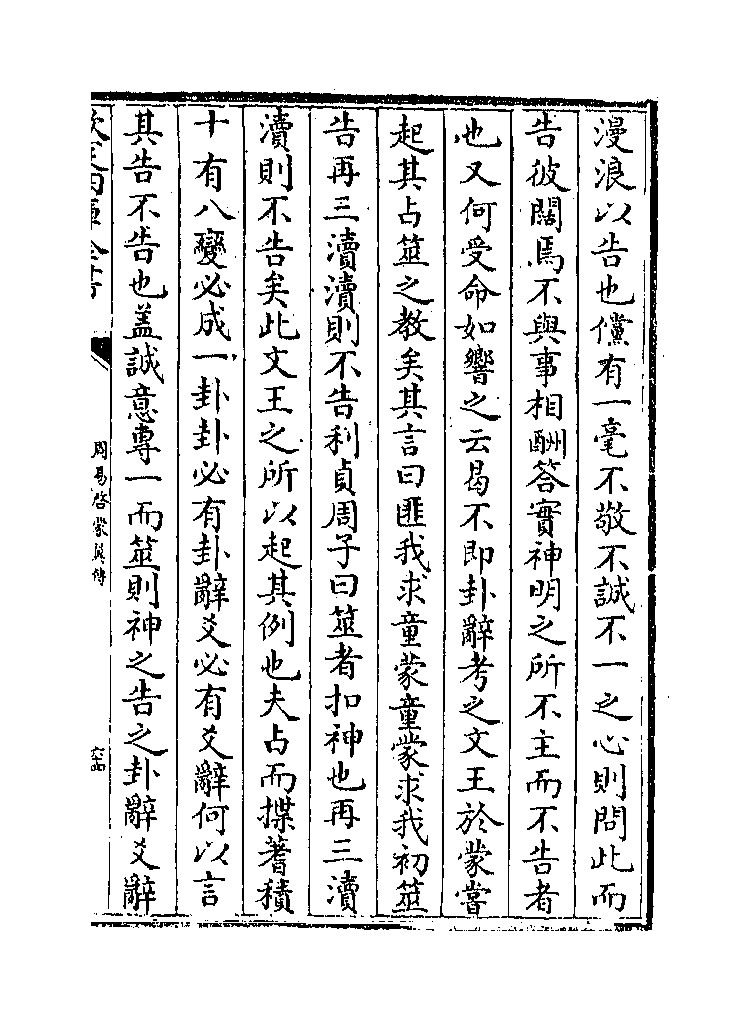 漫浪以告也儻有一毫不敬不誠不一之心則問此而
告彼闊焉不與事相酬答實神明之所不主而不告者
也又何受命如響之云曷不即卦辭考之文王於蒙嘗
起其占筮之教矣其言曰匪我求童蒙童蒙求我初筮
告再三瀆瀆則不告利貞周子曰筮者扣神也再三瀆
瀆則不告矣此文王之所以起其例也夫占而揲蓍積
十有八變必成一卦卦必有卦辭爻必有爻辭何以言
其告不告也盖誠意專一而筮則神之告之卦辭爻辭
欽定四庫全書
周易啓蒙翼傳